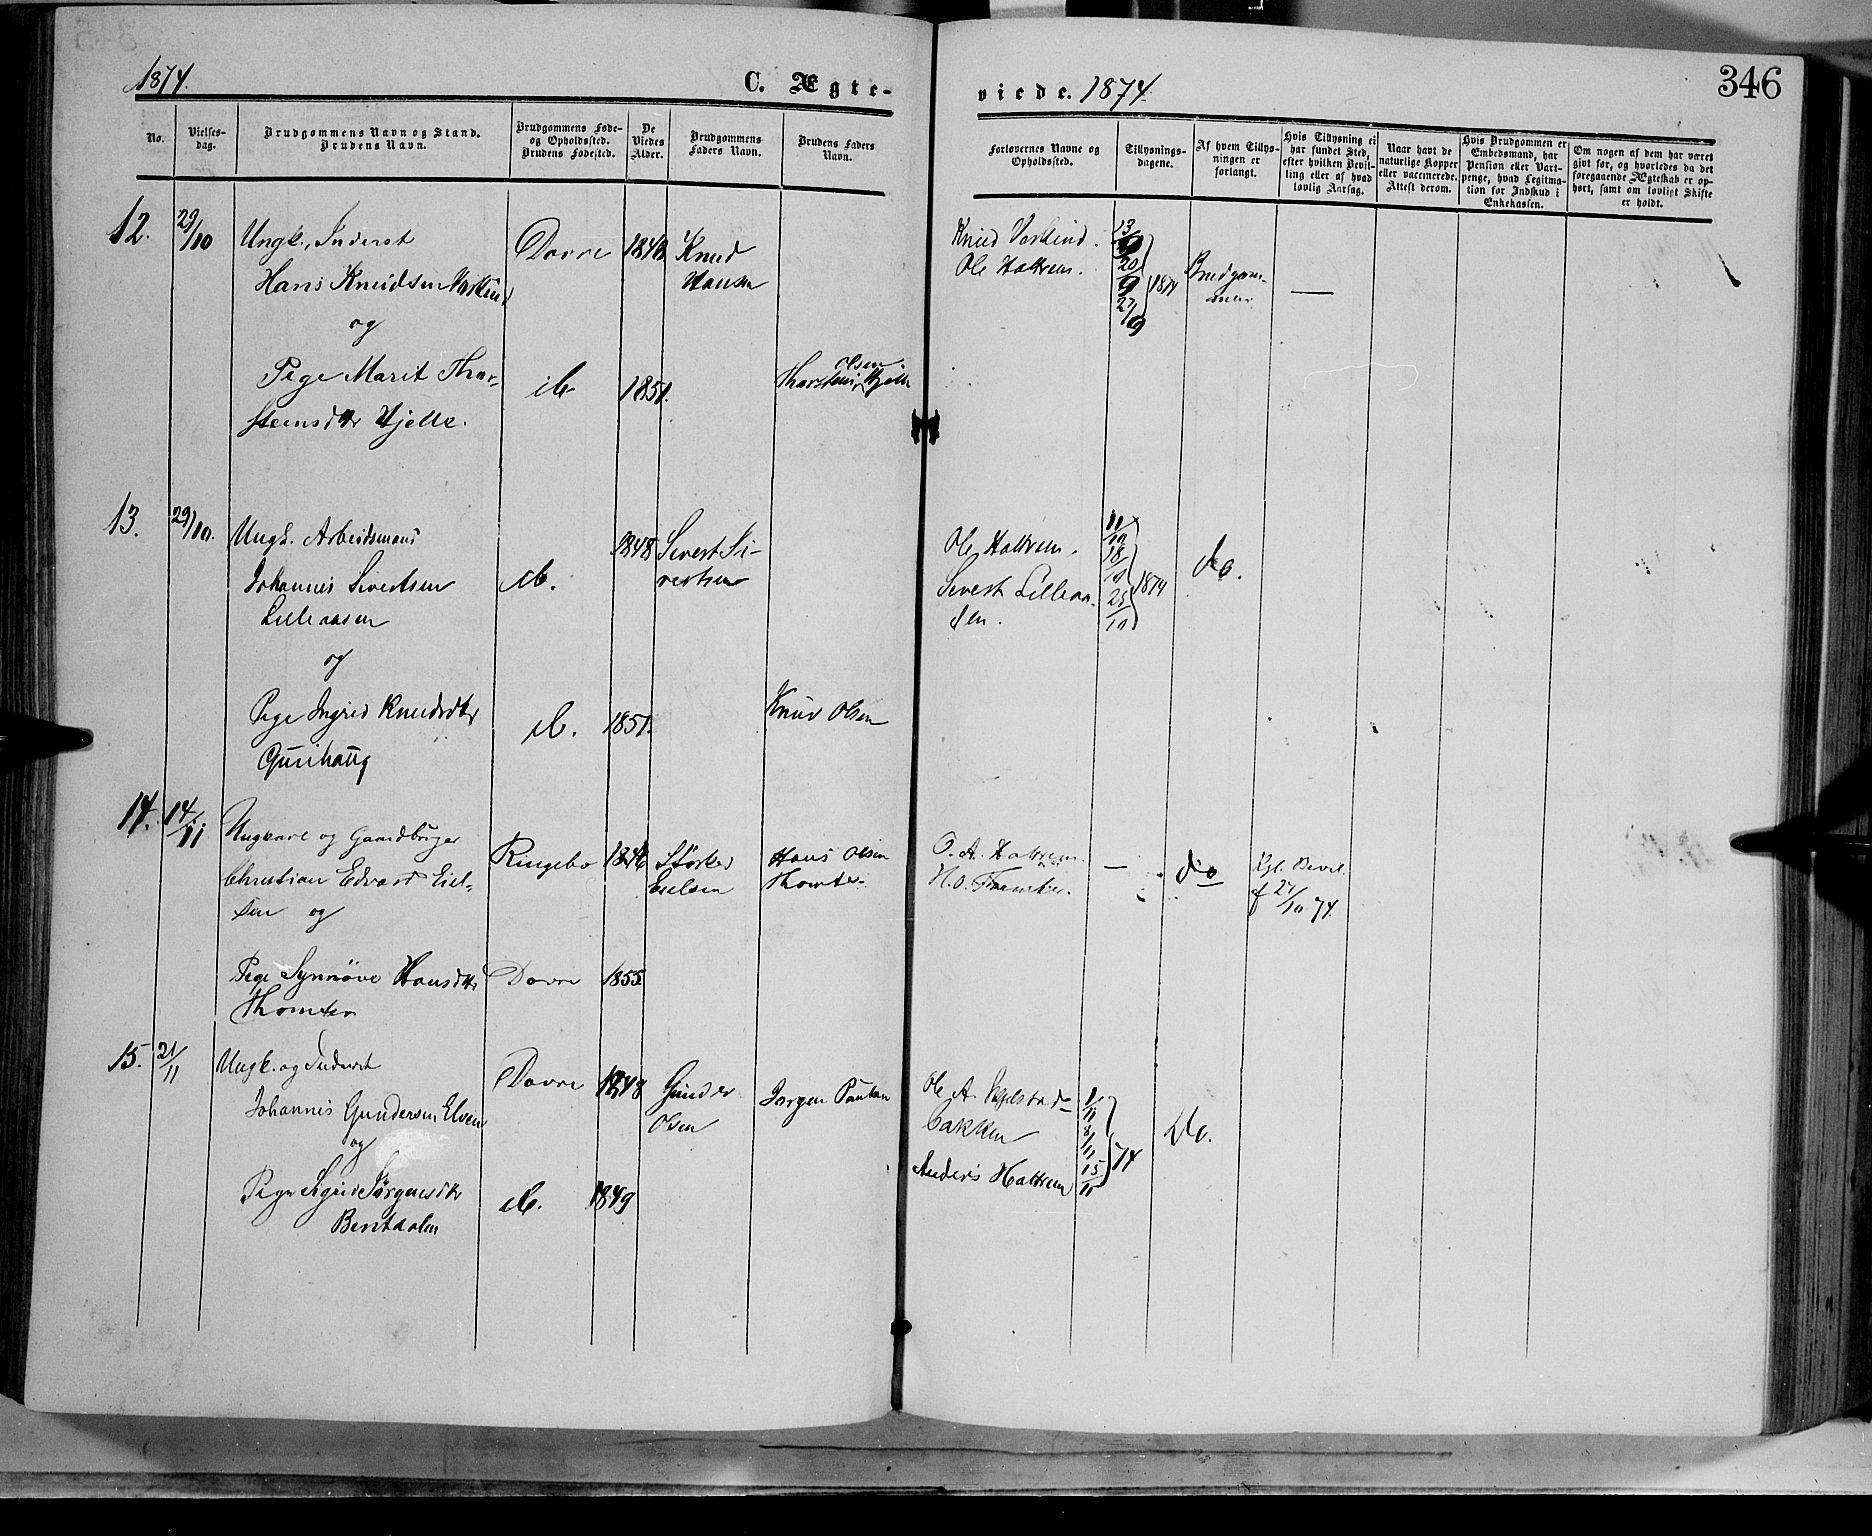 1874.
C. Ægte-
No.
Vielses-
dag.
Brudgommens Navn og Stand.
Brudens Navn.
Brudgommens Føde-
og Opholdssted.
Brudens Fødested.
De
Viedes
Alder.
Brudgommens
Faders Navn.
Brudens Faders
Navn.
12.
29/10
Ungk., Inderst
Hans Knudsen
og
Pige Marit Thor-
steinsdtr Hjelle.
Dovre
do
1848
1851.
Knud
Hansen
Olsen
Thorstein Hjelle
13.
29/10.
Ungk. Arbeidsmand
Johannis Sivertsen
Lilleaasen
og
Pige Ingrid Knudsdtr
Gunihaug
do.
do.
1848
1851.
Sivert Si-
vertsen
Knud Olsen
14.
14/11
Ungkarl og Gaardbruger
Christian Edvard Eiel-
sen og
Pige Synnøve Hansdtr
Thomter
Ringebo
Dovre
1846
1855
Størker
Eielsen
Hans Olsen
Thomter
15.
21/11
Ungk. og Inderst
Johannis Gundersen Elven
og
Pige Sigrid Jørgensdtr
Bentdalen
Dovre
do.
1848
1849
Gunder
Olsen
Jørgen
viede. 1874.
346
Forlovernes Navne og
Opholdssted.
Tillysnings-
dagene.
Af hvem Tillys-
ningen er
forlangt.
Hvis Tillysning ei
har fundet Sted,
efter hvilken Bevil-
ling eller af hvad
lovlig Aarsag.
Naar havt de
naturlige Kopper
eller vaccinerede.
Attest derom.
Hvis Brudgommen er
Embedsmand, har
Pension eller Vart-
penge, hvad Legitima-
tion for Indskud i
Enkekassen.
Om nogen af dem har været
givt før, og hvorledes da det
foregaaende Ægteskab er op-
hørt, samt om lovligt Skifte
er holdt.
Knud
Ole Hattrem.
13/9
20/9
27/9
1874
Brudgom-
men
—
Ole Hattrem.
Sivert Lilleaa-
sen.
11/10
18/10
25/10
1874
do.
O. A. Hattrem.
H. O. Thomter.
—
do
Kgl. Bevil.
af 27/10 74.
Ole A.
bakken
Anders Hattrem
1/11
8/11
15/11
74
do.